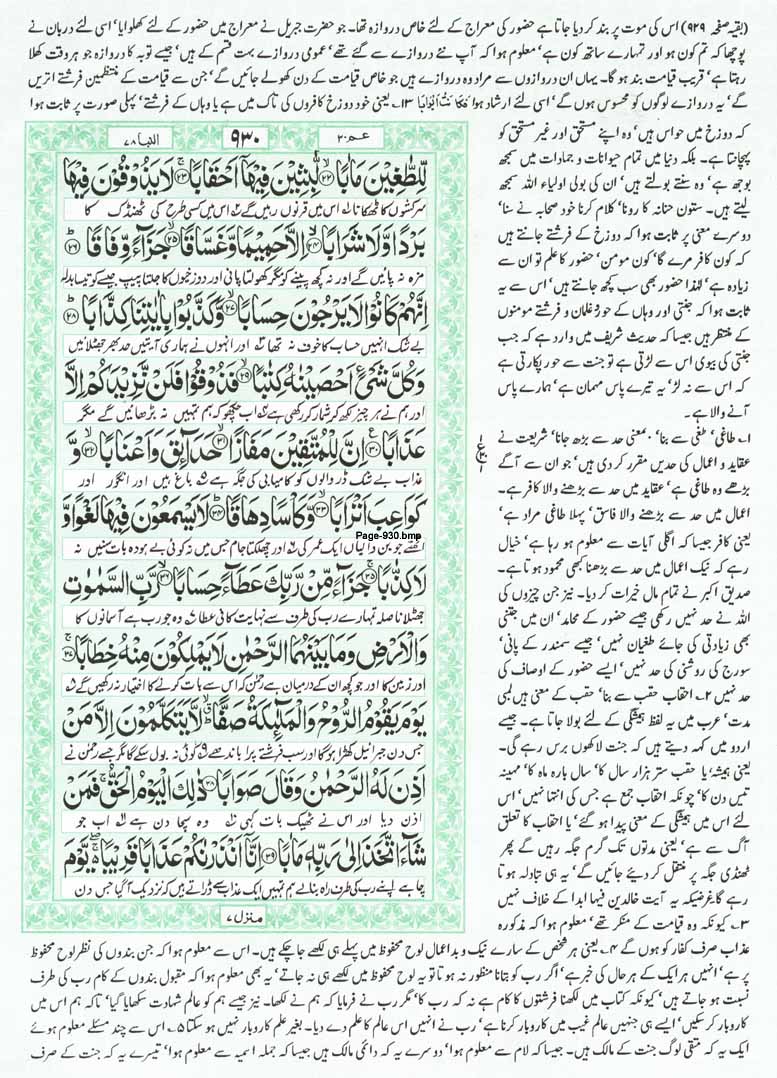 (بقیہ صفحہ ۹۲۹) اس کی موت پر بند کر دیا جاتا ہے حضور کی معراج کے لئے خاص دروازہ تھا۔ جو حضرت جبریل نے معراج میں حضور کے لئے کھلوایا' اسی لئے دربان نے
پوچھا کہ تم کون ہو اور تمہارے ساتھ کون ہے' معلوم ہوا کہ آپ نئے دروازے سے گئے تھے' عمومی دروازے بہت قسم کے ہیں' جیسے توبہ کا دروازہ جو ہر وقت کھلا
رہتا ہے' قریب قیامت بند ہو گا۔ یہاں ان دروازوں سے مراد وہ دروازے ہیں جو خاص قیامت کے دن کھولے جائیں گے' جن سے قیامت کے منتظمین فرشتے اتریں
گے' یہ دروازے لوگوں کو محسوس ہوں گے' اسی لئے ارشاد ہوا فَكَانَتْ اَبْوَابًا ۱۳۔ یعنی خود دوزخ کافروں کی تاک میں ہے یا وہاں کے فرشتے' پہلی صورت پر ثابت ہوا
کہ دوزخ میں حواس ہیں' وہ اپنے مستحق اور غیر مستحق کو
پہچانتا ہے۔ بلکہ دنیا میں تمام حیوانات و جمادات میں سمجھ
بوجھ ہے' وہ سنتے بولتے ہیں' ان کی بولی اولیاء اللہ سمجھ
لیتے ہیں۔ ستون حنانہ کا رونا' کلام کرنا خود صحابہ نے سنا'
دوسرے معنی پر ثابت ہوا کہ دوزخ کے فرشتے جانتے ہیں
کہ کون کافر مرے گا' کون مومن' حضور کا علم تو ان سے
زیادہ ہے' لہٰذا حضور بھی سب کچھ جانتے ہیں' اس سے یہ
ثابت ہوا کہ جنتی اور وہاں کے حور غلمان و فرشتے مومنوں
کے منتظر ہیں جیسا کہ حدیث شریف میں وارد ہے کہ جب
جنتی کی بیوی اس سے لڑتی ہے تو جنت سے حور پکارتی ہے
کہ اس سے نہ لڑ' یہ تیرے پاس مہمان ہے' ہمارے پاس
آنے والا ہے۔
۱۔ طاغی' طغی سے بنا' معنی حد سے بڑھ جانا' شریعت نے
عقاید و اعمال کی حدیں مقرر کر دی ہیں' جو ان سے آگے
بڑھے وہ طاغی ہے' عقاید میں حد سے بڑھنے والا کافر ہے۔
اعمال میں حد سے بڑھنے والا فاسق' پہلا طاغی مراد ہے'
یعنی کافر جیسا کہ اگلی آیات سے معلوم ہو رہا ہے' خیال
رہے کہ نیک اعمال میں حد سے بڑھنا کبھی محمود ہوتا ہے۔
صدیق اکبر نے تمام مال خیرات کر دیا۔ نیز جن چیزوں کی
اللہ نے حد نہیں رکھی جیسے حضور کے محامد' ان میں جتنی
بھی زیادتی کی جائے طغیان نہیں' جیسے سمندر کے پانی'
سورج کی روشنی کی حد نہیں' ایسے حضور کے اوصاف کی
حد نہیں ۲۔ احقاب حقب سے بنا' حقب کے معنی ہیں لمبی
مدت' عرب میں یہ لفظ ہمیشگی کے لئے بولا جاتا ہے۔ جیسے
اردو میں کہہ دیتے ہیں کہ جنت لاکھوں برس رہے گی۔
یعنی ہمیشہ' یا حقب ستر ہزار سال کا' سال بارہ ماہ کا' مہینہ
تیس دن کا' چونکہ احقاب جمع ہے جس کی انتہا نہیں' اس
لئے اس میں ہمیشگی کے معنی پیدا ہو گئے' یا احقاب کا تعلق
آگ سے ہے' یعنی مدتوں تک گرم جگہ رہیں گے پھر
ٹھنڈی جگہ پر منتقل کر دیئے جائیں گے' یہ ہی تبادلہ ہوتا
رہے گا غرضیکہ یہ آیت خالدین فیہا ابدا کے خلاف نہیں
۳۔ کیونکہ وہ قیامت کے منکر تھے' معلوم ہوا کہ مذکورہ
النبا ۷۸
۹۳۰
عم ۳۰
لِّلطّٰغِیْنَ مَاٰبًا ﴿۲۲﴾ لّٰبِثِیْنَ فِیْهَاۤ اَحْقَابًا ﴿۲۳﴾ لَا یَذُوْقُوْنَ فِیْهَا
سرکشوں کا ٹھکانا لہ اس میں قرنوں رہیں گے لہ اس میں کسی طرح کی ٹھنڈک کا
بَرْدًا وَّلَا شَرَابًا ﴿۲۴﴾ اِلَّا حَمِیْمًا وَّغَسَّاقًا ﴿۲۵﴾ جَزَآءً وِّفَاقًا ﴿۲۶﴾
مزہ نہ پائیں گے اور نہ کچھ پینے کو مگر کھولتا پانی اور دوزخیوں کا جلتا پیپ جیسے کو تیسا بدلہ
اِنَّهُمْ كَانُوْا لَا یَرْجُوْنَ حِسَابًا ﴿۲۷﴾ وَّكَذَّبُوْا بِاٰیٰتِنَا كِذَّابًا ﴿۲۸﴾
بے شک انہیں حساب کا خوف نہ تھا اور انہوں نے ہماری آیتیں حد بھر جھٹلائیں
وَكُلَّ شَیْءٍ اَحْصَیْنٰهُ كِتٰبًا ﴿۲۹﴾ فَذُوْقُوْا فَلَنْ نَّزِیْدَكُمْ اِلَّا
اور ہم نے ہر چیز لکھ کر شمار کر رکھی ہے اب چکھو کہ ہم تمہیں نہ بڑھائیں گے مگر
عَذَابًا ﴿۳۰﴾ اِنَّ لِلْمُتَّقِیْنَ مَفَازًا ﴿۳۱﴾ حَدَآئِقَ وَاَعْنَابًا ﴿۳۲﴾ وَّ
عذاب بے شک ڈر والوں کو کامیابی کی جگہ ہے باغ ہیں اور انگور اور
كَوَاعِبَ اَتْرَابًا ﴿۳۳﴾ وَّكَاْسًا دِهَاقًا ﴿۳۴﴾ لَا یَسْمَعُوْنَ فِیْهَا لَغْوًا وَّ
اٹھتے جوبن والیاں ایک عمر کی اور چھلکتا جام جس میں نہ کوئی بے ہودہ بات سنیں نہ
Page-930.bmp
لَا كِذّٰبًا ﴿۳۵﴾ جَزَآءً مِّنْ رَّبِّكَ عَطَآءً حِسَابًا ﴿۳۶﴾ رَّبِّ السَّمٰوٰتِ
جھٹلانا صلہ تمہارے رب کی طرف سے نہایت کافی عطا وہ جو رب ہے آسمانوں کا
وَالْاَرْضِ وَمَا بَیْنَهُمَا الرَّحْمٰنِ لَا یَمْلِكُوْنَ مِنْهُ خِطَابًا ﴿۳۷﴾
اور زمین کا اور جو کچھ ان کے درمیان ہے رحمٰن کہ اس سے بات کرنے کا اختیار نہ رکھیں گے
یَوْمَ یَقُوْمُ الرُّوْحُ وَالْمَلٰٓئِكَةُ صَفًّا لَّا یَتَكَلَّمُوْنَ اِلَّا مَنْ
جس دن جبرائیل کھڑا ہو گا اور سب فرشتے پرا باندھے کوئی نہ بول سکے گا مگر جسے رحمٰن نے
اَذِنَ لَهُ الرَّحْمٰنُ وَقَالَ صَوَابًا ﴿۳۸﴾ ذٰلِكَ الْیَوْمُ الْحَقُّ فَمَنْ
اذن دیا اور اس نے ٹھیک بات کہی وہ سچا دن ہے اب جو
شَآءَ اتَّخَذَ اِلٰى رَبِّهٖ مَاٰبًا ﴿۳۹﴾ اِنَّاۤ اَنْذَرْنٰكُمْ عَذَابًا قَرِیْبًا یَّوْمَ
چاہے اپنے رب کی طرف راہ بنا لے ہم تمہیں ایک عذاب سے ڈراتے ہیں کہ نزدیک آ گیا جس دن
منزل ۷
عذاب صرف کفار کو ہوں گے ۴۔ یعنی ہر شخص کے سارے نیک و بد اعمال لوح محفوظ میں پہلے ہی لکھے جا چکے ہیں۔ اس سے معلوم ہوا کہ جن بندوں کی نظر لوح محفوظ
پر ہے' انہیں ہر ایک کے ہر حال کی خبر ہے' اگر رب کو بتانا منظور نہ ہوتا تو یہ لوح محفوظ میں لکھے ہی نہ جاتے' یہ بھی معلوم ہوا کہ مقبول بندوں کے کام رب کی طرف
نسبت ہو جاتے ہیں' کیونکہ کتاب میں لکھنا فرشتوں کا کام ہے نہ کہ رب کا' مگر رب نے فرمایا کہ ہم نے لکھا۔ نیز جسے ہم کو عالم شہادت سکھایا گیا' تاکہ ہم اس میں
کاروبار کر سکیں' ایسے ہی جنہیں عالم غیب میں کاروبار کرنا ہے' رب نے انہیں اس عالم کا علم دے دیا۔ بغیر علم کاروبار نہیں ہو سکتا ۵۔ اس سے چند مسئلے معلوم ہوئے
ایک یہ کہ متقی لوگ جنت کے مالک ہیں۔ جیسا کہ لام سے معلوم ہوا' دوسرے یہ کہ دائمی مالک ہیں جیسا کہ جملہ اسمیہ سے معلوم ہوا' تیسرے یہ کہ جنت کے صرف